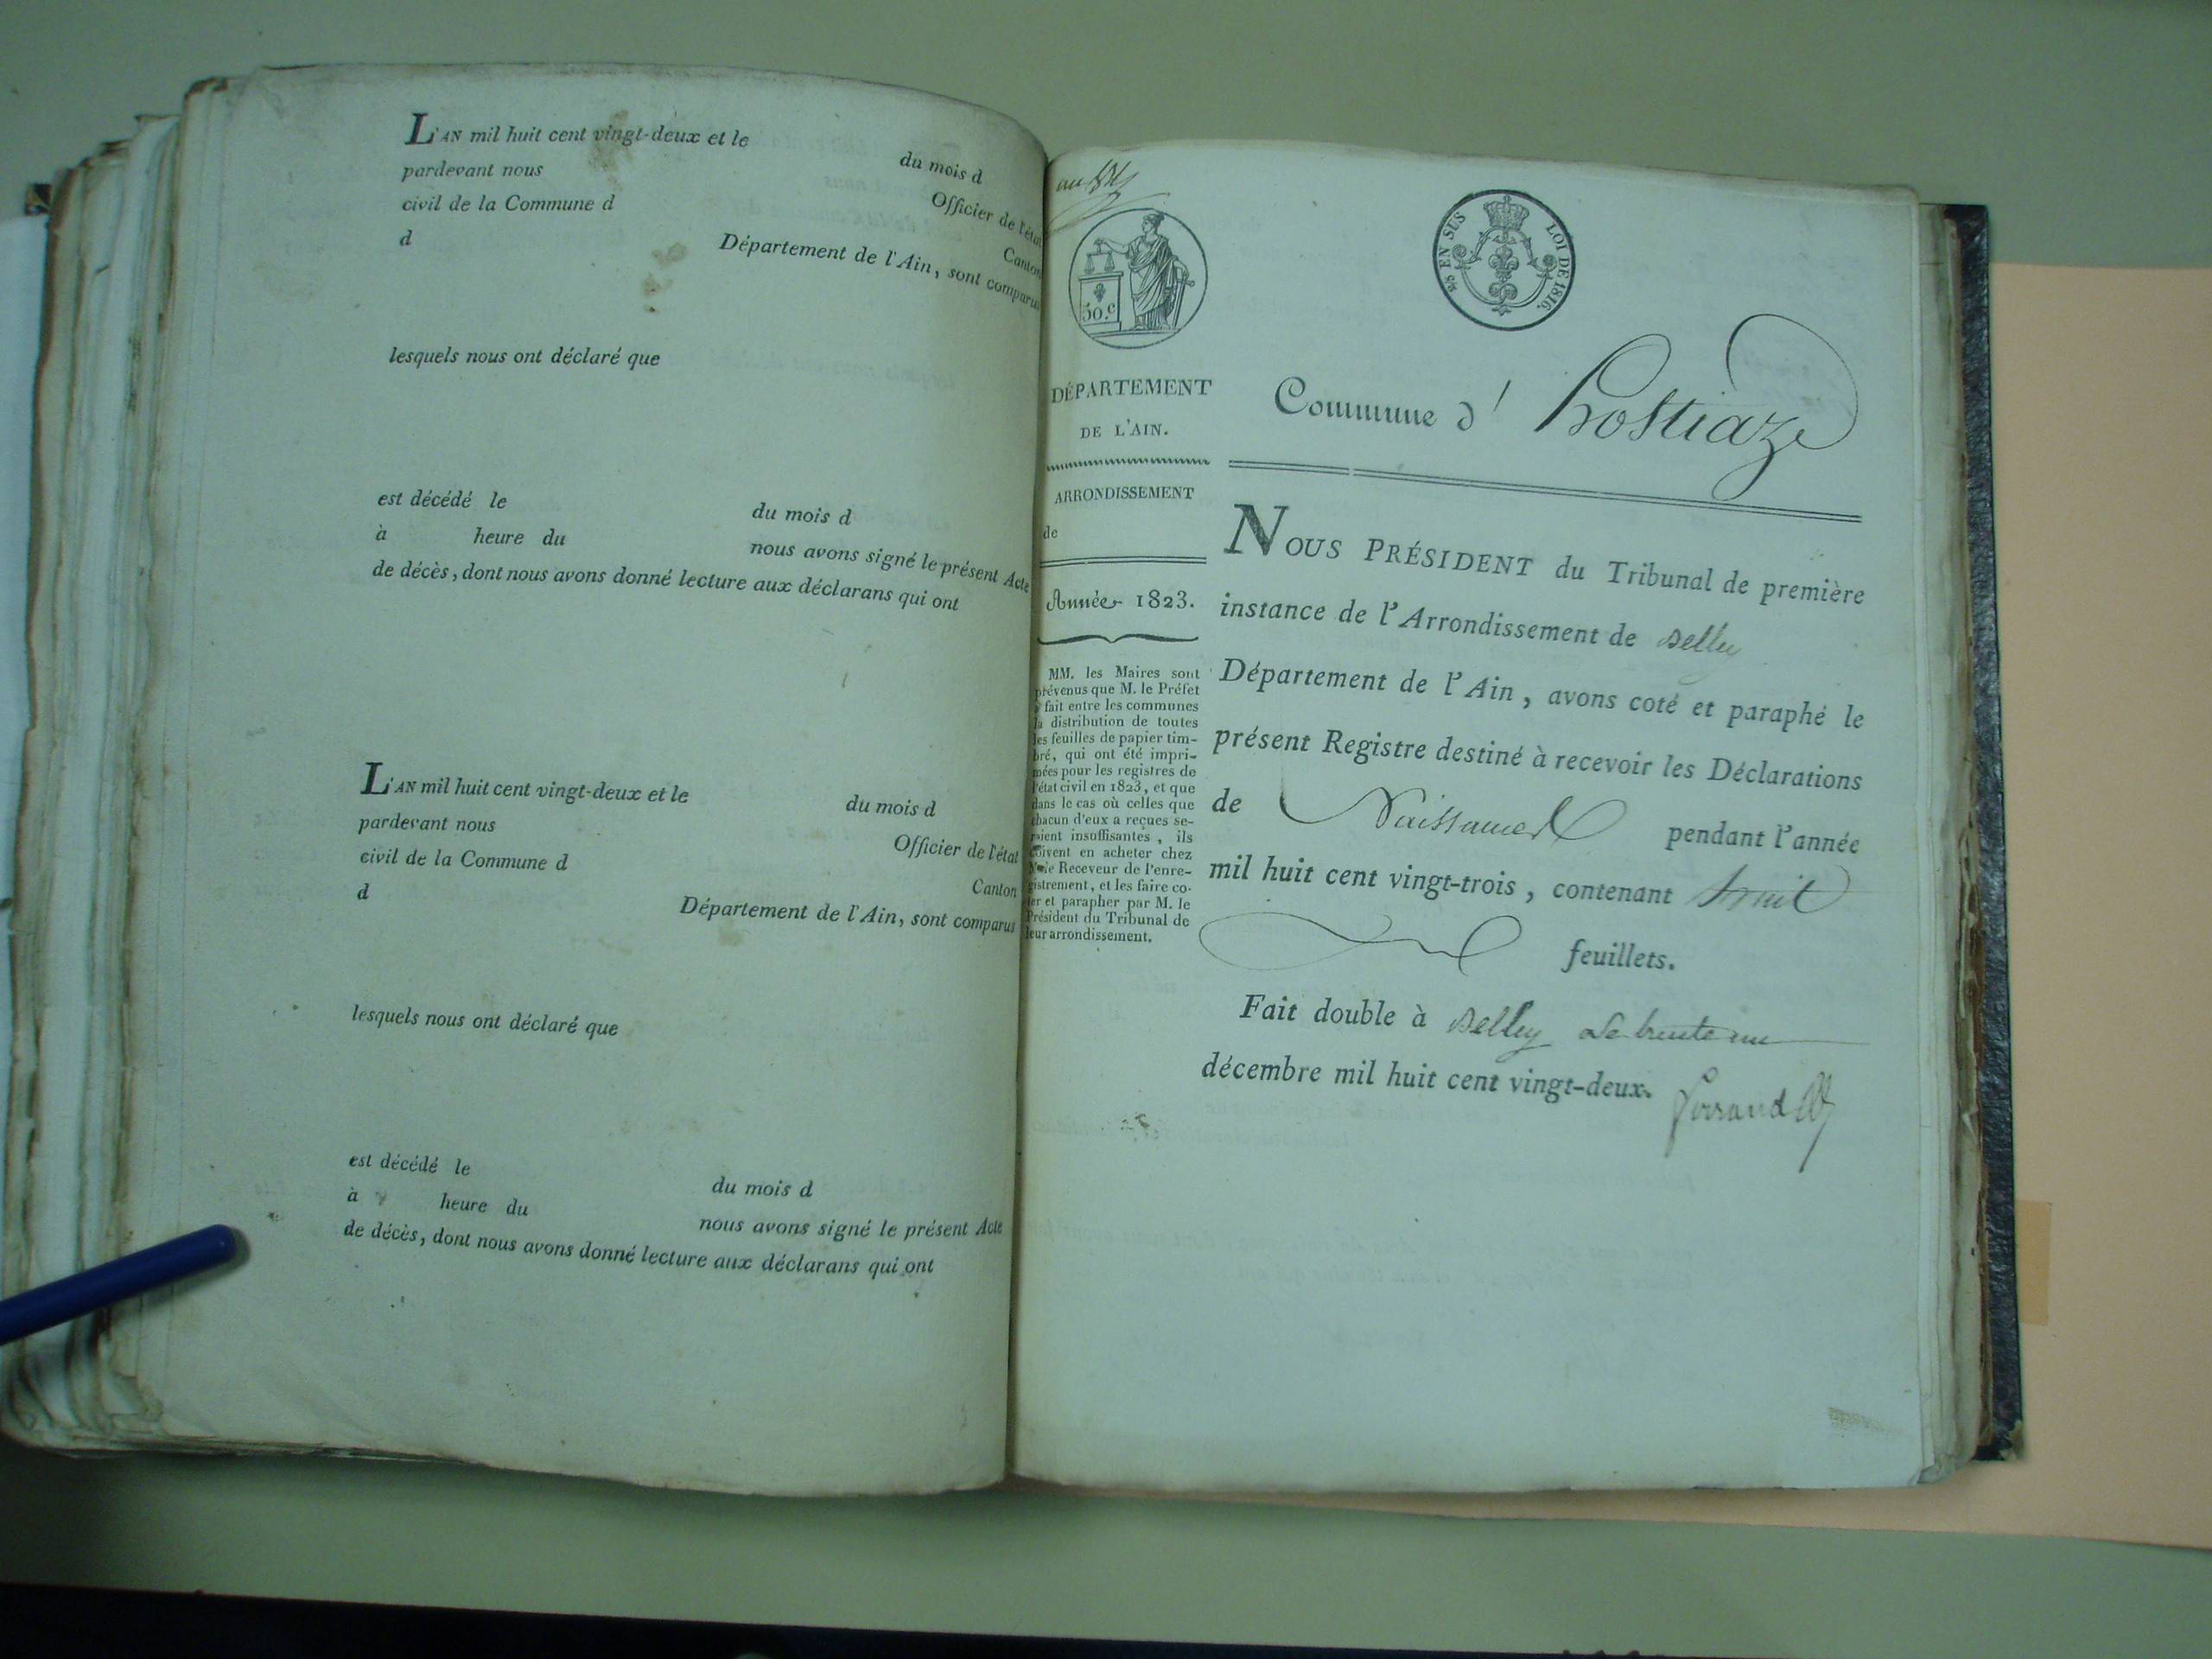 L'AN mil huit cent vingt-deux et le du mois d
pardevant nous Officier de l'état
civil de la Commune d Canton
d Département de l'Ain, sont comparus
lesquels nous ont déclaré que
est décédé le du mois d
à heure du nous avons signé le présent Acte
de décès, dont nous avons donné lecture aux déclarans qui ont
L'AN mil huit cent vingt-deux et le du mois d
pardevant nous Officier de l'état
civil de la Commune d Canton
d Département de l'Ain, sont comparus
lesquels nous ont déclaré que
est décédé le du mois d
à heure du nous avons signé le présent Acte
de décès, dont nous avons donné lecture aux déclarans qui ont
50.c
EN SUS LOI DE 1816.
DÉPARTEMENT
DE L'AIN.
ARRONDISSEMENT
de
Année 1823.
MM. les Maires sont
prévenus que M. le Préfet
a fait entre les communes
la distribution de toutes
les feuilles de papier tim-
bré, qui ont été impri-
mées pour les registres de
l'état civil en 1823, et que
dans le cas où celles que
chacun d'eux a reçues se-
roient insuffisantes, ils
doivent en acheter chez
le Receveur de l'enre-
gistrement, et les faire co-
ter et parapher par M. le
Président du Tribunal de
leur arrondissement.
Commune d' hostiaze
NOUS PRÉSIDENT du Tribunal de première
instance de l'Arrondissement de Belley
Département de l'Ain, avons coté et paraphé le
présent Registre destiné à recevoir les Déclarations
de Naissances pendant l'année
mil huit cent vingt-trois, contenant huit
feuillets.
Fait double à Belley Le trente un
décembre mil huit cent vingt-deux.